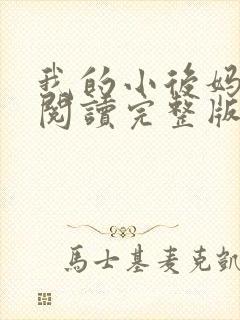 我的小後媽
閱讀完整版
馬士基麥克凱